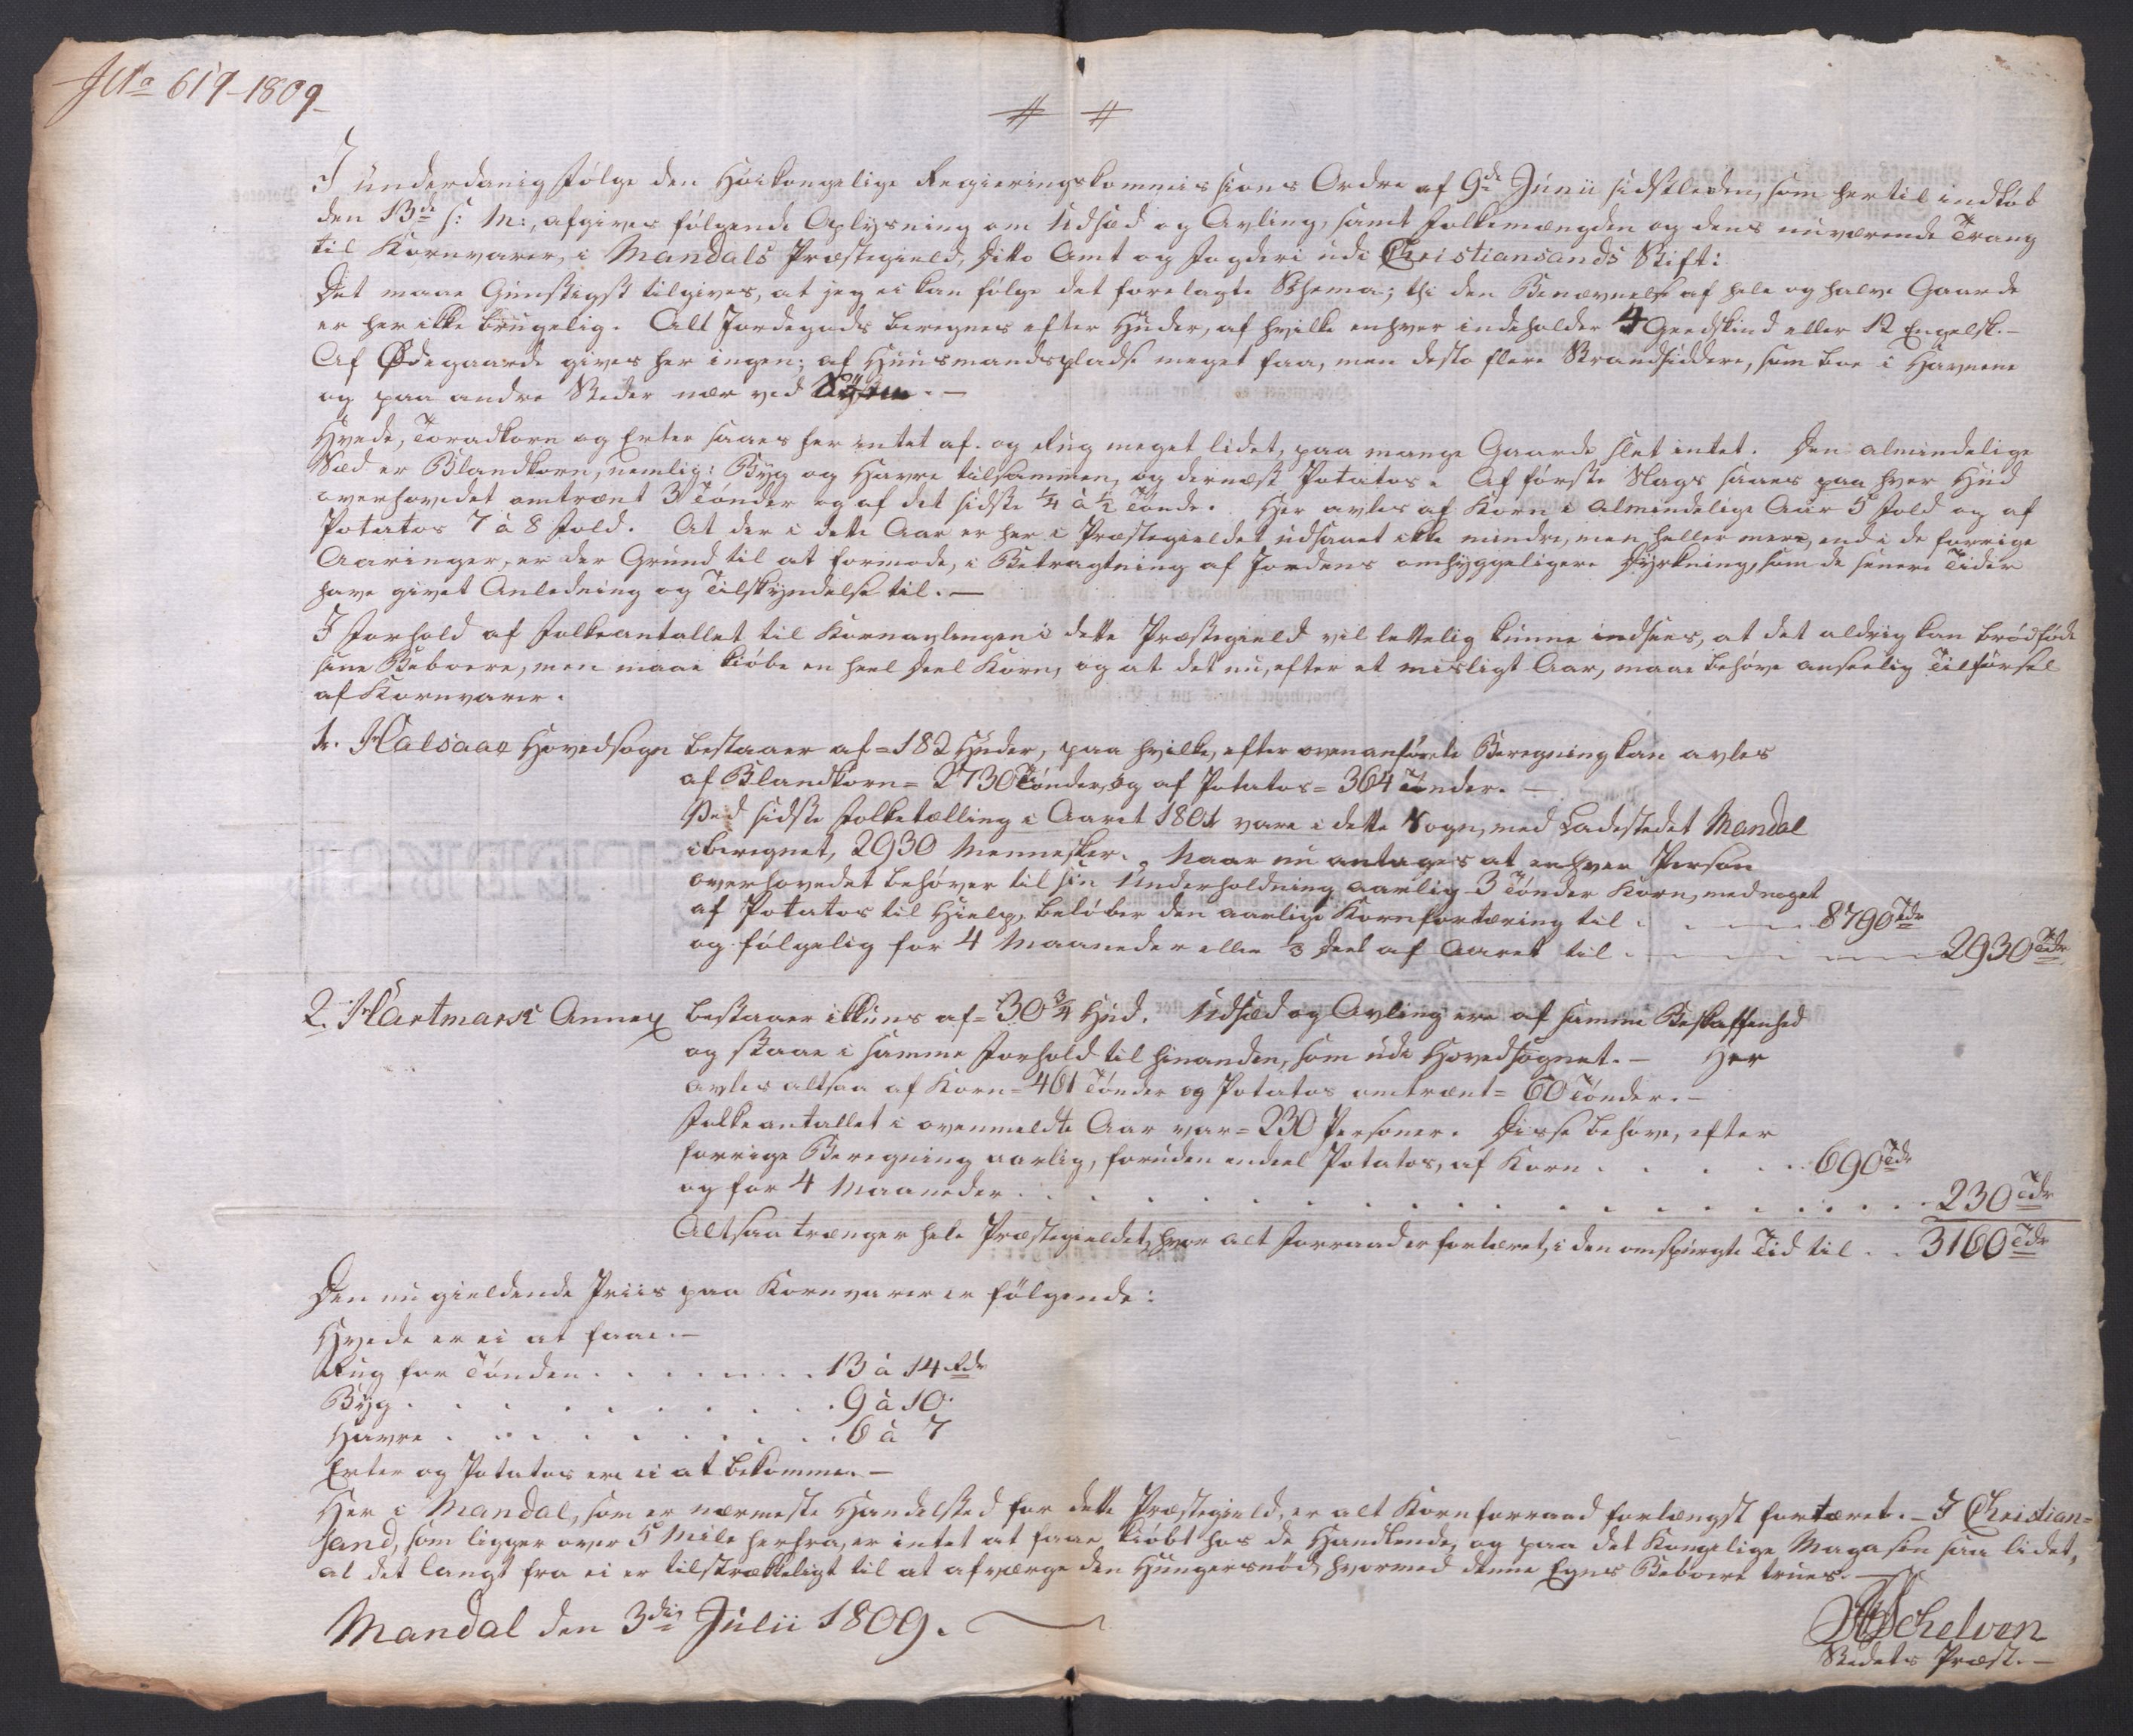 Nto 619-1809
I underdanig Følge den Høikongelige Regieringskommissions Ordre af 9de Junii sidstleden, som hertil indkøb
den 13de s: M:, afgives følgende Oplysning om Udsæd og Avling, samt Folkemængden og dens nuværende Trang
til Kornvarer, i Mandals Præstegield, Ditto Amt og Fogderi udi Christiansands Stift:
Det maae Gunstigst tilgives, at jeg ei kan følge det forelagte Schema; thi den Benævnelse af hele og halve Gaarde
er her ikke brugelig. Alt Jordegods beregnes efter Huder, af hvilke enhver indeholder 4 Geedskind eller 12 Engelsk.-
Af Ødegaarde gives her ingen; af Huusmandspladse meget faa, men desto flere Strandsiddere, som boe i Havnene
og paa andre Steder nær ved Søen.-
Hvede, Toradkorn og Erter saaes her intet af. og Rug meget lidet, paa mange Gaarde slet intet. Den almindelige
Sæd er Blandkorn, nemlig: Byg og Havre tilsammen, og dernæst Potatos. Af første Slags saaes paa hver Hud
overhovedet omtrent 3 Tønder og af det sidste 1/4 à 1/2 Tønde. Her avles af Korn i almindelige Aar 5 Fold og af
Potatos 7 à 8 Fold. At der i dette Aar er her i Præstegieldet udsaaet ikke mindre, men heller mere, end i de forrige
Aaringer, er der Grund til at formode, i Betragtning af Jordens omhyggeligere Dyrkning, som de senere Tider
have givet Anledning og Tilskyndelse til.-
I Forhold af Folkeantallet til Kornavlingen i dette Præstegield vil lettelig kunne indsees, at det aldrig kan brødføde
sine Beboere, men maae kiøbe en heel Deel Korn, og at det nu, efter et misligt Aar, maae behøve anseelig Tilførsel
af Kornvarer.
1. Halsaae Hovedsogn bestaaer af = 182 Huder, paa hvilke, efter ovenanførte Beregning kan avles
af Blandkorn = 2730 Tønder, og af Potatos = 364 Tønder.-
Ved sidste Folketælling i Aaret 1801 vare i dette Sogn, med Ladestedet Mandal
iberegnet, 2930 Mennesker. Naar nu antages at enhver Person
overhovedet behøver til sin Underholdning aarlig 3 Tønder Korn, med noget
af Potatos til Hielp, beløber den aarlige Kornfortæring til . . 8790 Tdr
og følgelig for 4 Maaneder eller 1/3 Deel af Aaret til . . . 2930 Tdr
2. Hartmark Annex bestaaer ikkuns af = 30 3/4 Hud. Udsæd og Avling ere af samme Beskaffenhed
og staae i samme Forhold til hinanden, som udi Hovedsognet.- Her
avles altsaa af Korn = 461 Tønder og Potatos omtrent = 60 Tønder.-
Folkeantallet i ovenmeldte Aar var = 230 Personer. Disse behøve, efter
forrige Beregning aarlig, foruden endeel Potatos, af Korn . . . . . 690 Tdr
og for 4 Maaneder . . . . . . . . . . . . . . 230 Tdr
Altsaa trænger hele Præstegieldet, hvor alt Forraad er fortæret, i den omspurgte Tid til . . 3160 Tdr
Den nu gieldende Priis paa Kornvarer er følgende:
Hvede er ei at faae.-
Rug for Tønden . . . . . . . 13 à 14 Rdr
Byg . . . . . . . . . 9 à 10.
Havre . . . . . . . . 6 à 7
Erter og Potatos ere ei at bekomme.-
Her i Mandal, som er nærmeste Handelssted for dette Præstegield, er alt Kornforraad forlængst fortæret.- I Christian=
sand, som ligger over 5 Mile herfra, er intet at faae kiøbt hos de Handlende, og paa det Kongelige Magasin saa lidet,
at det langt fra ei er tilstrækkeligt til at afværge den Hungersnød, hvormed denne Egns Beboere trues.-
Mandal den 3die Julii 1809.
Schelven
Stedets Præst.-